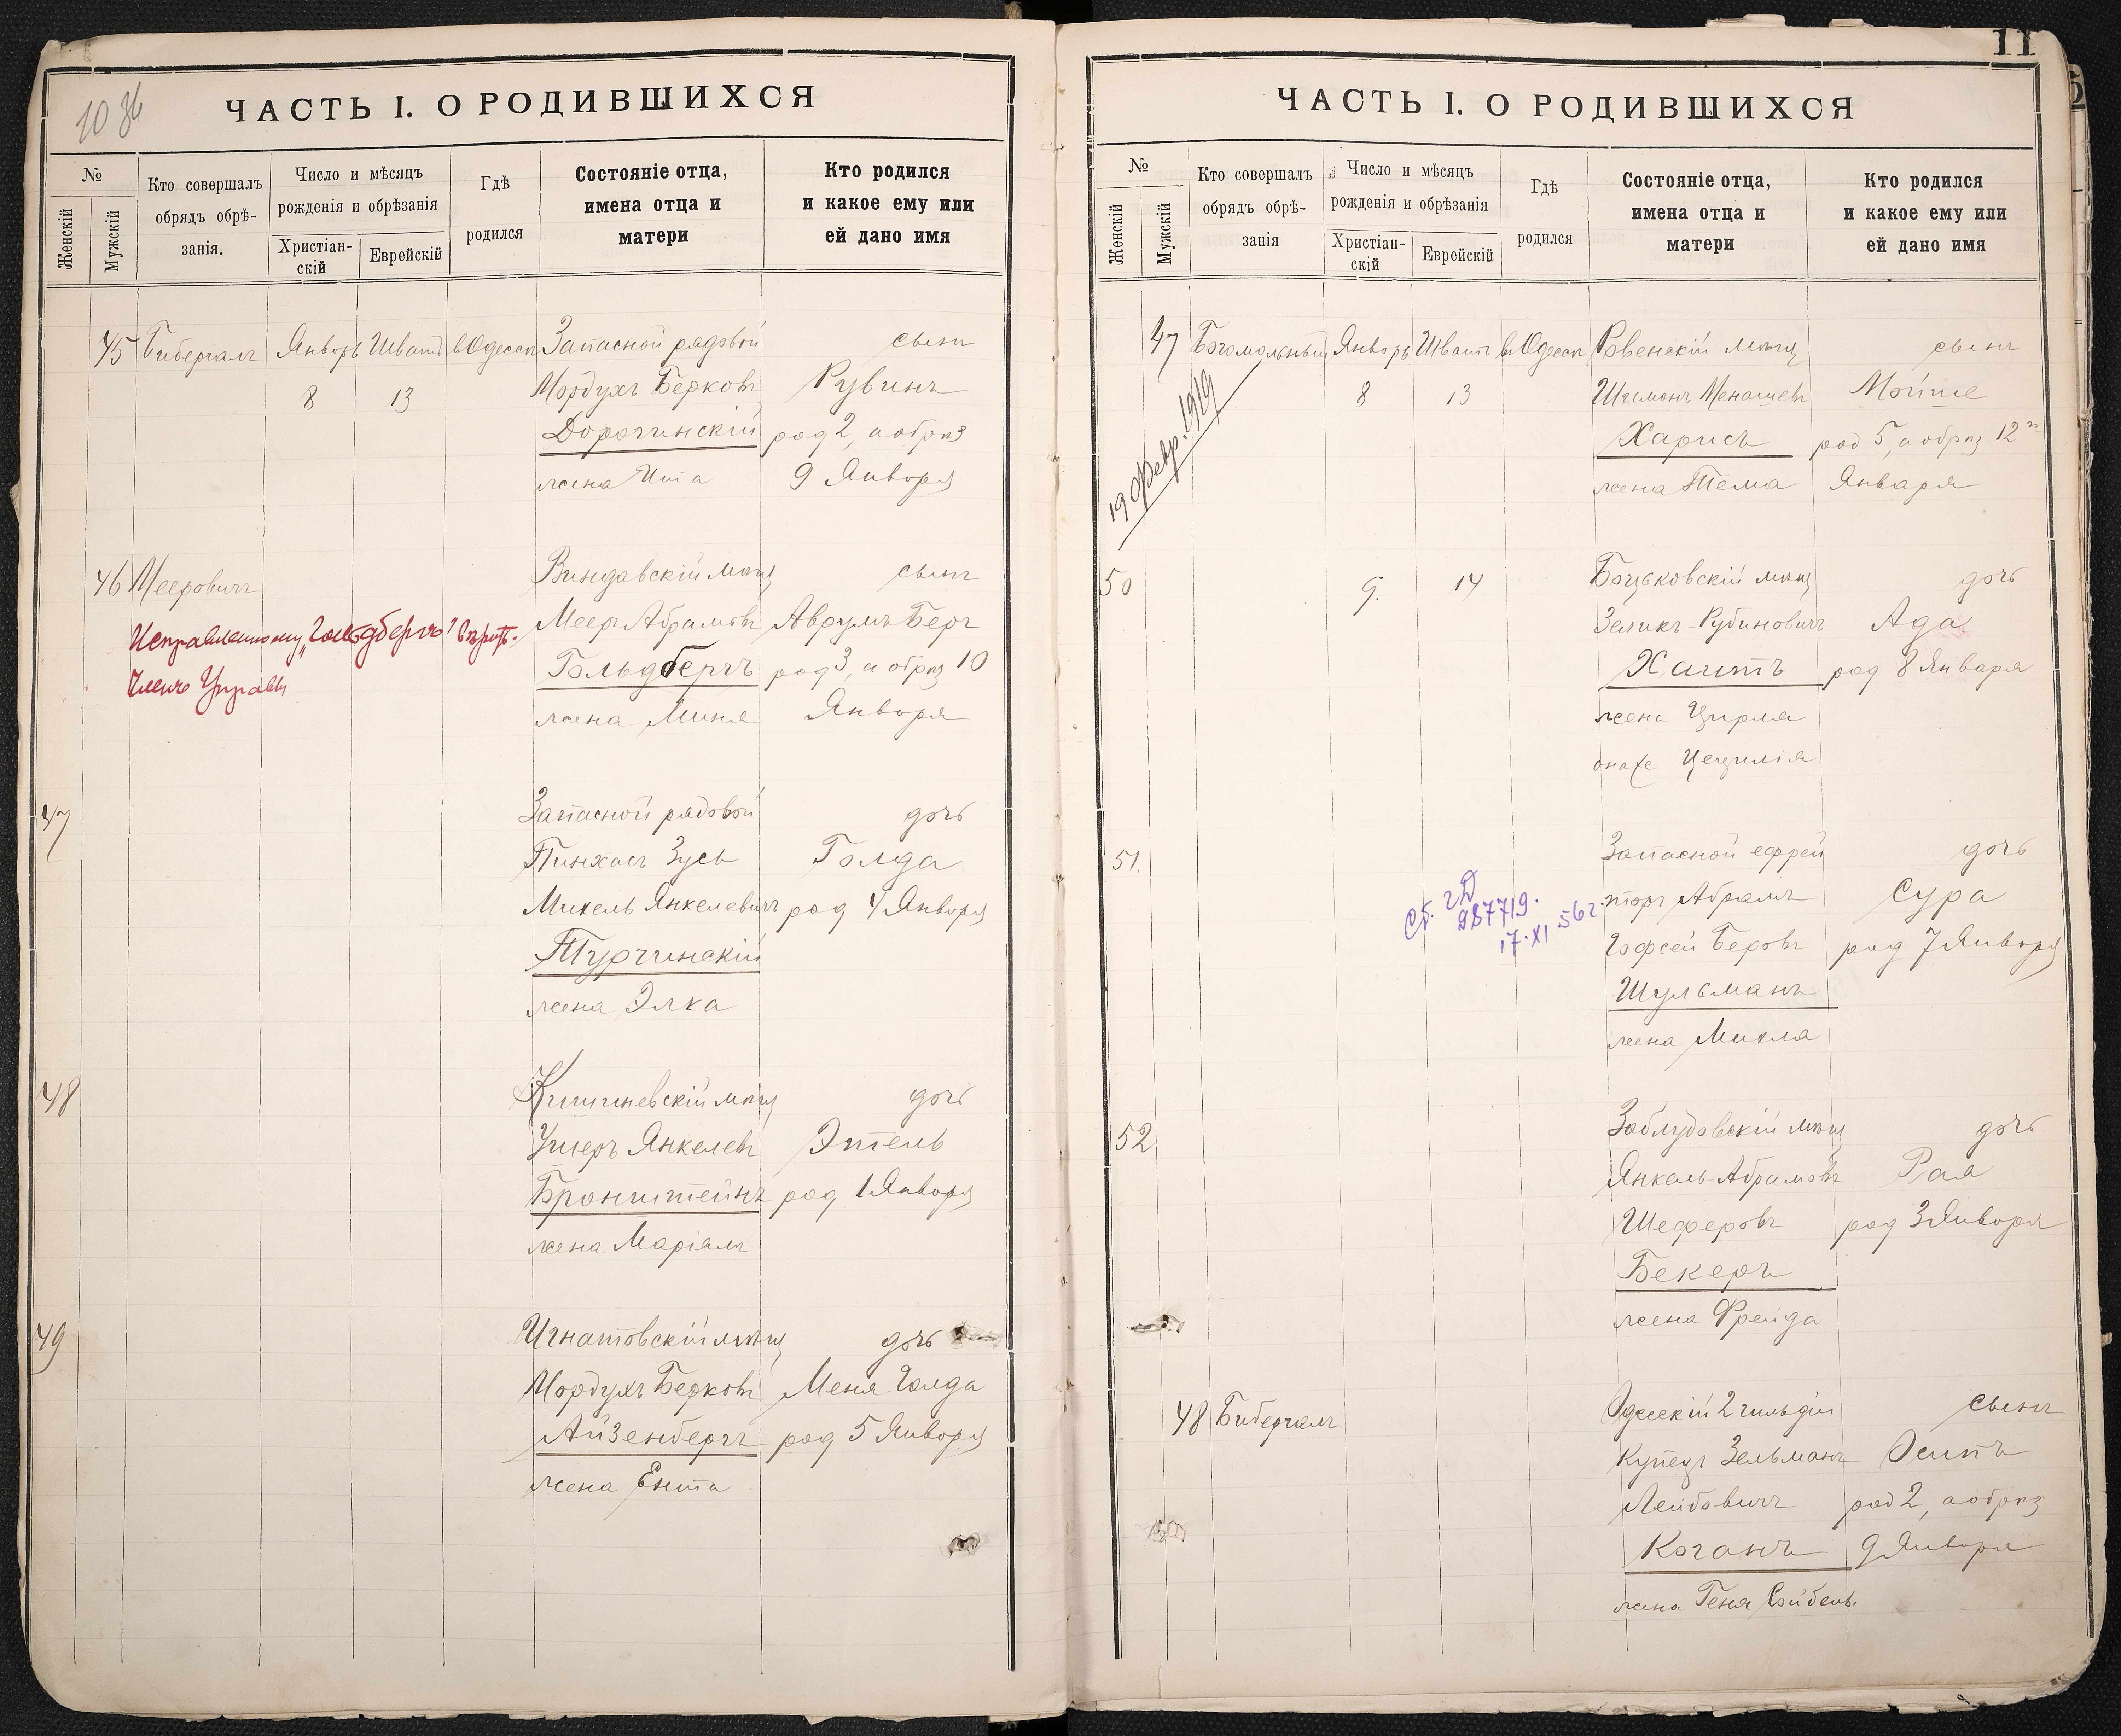 10 36
ЧАСТЬ I. О РОДИВШИХСЯ
№
Женскій
Мужскій
Кто совершалъ
обрядъ обрѣ-
занія.
Число и мѣсяцъ
рожденія и обрѣзанія
Христіан-
скій
Еврейскій
Гдѣ
родился
Состояніе отца,
имена отца и
матери
Кто родился
и какое ему или
ей дано имя
45 Бибергалъ Январь Шватъ в Одессѣ Запасной рядовой сынъ
8 13 Мордухъ Берковъ Рувинъ
Дорогинскій род 2, а обрѣз
жена Ита 9 Января
46 Мееровичъ Виндавскій мѣщ сынъ
Исправленному „Гольдбергъ" вѣрить.
Мееръ Абрамовъ Аврумъ Беръ
Членъ Управы
Гольдбергъ род 3, а обрѣз 10
жена Миня Января
47 Запасной рядовой дочь
Пинхасъ Зусь Голда
Михель Янкелевичъ род 4 Января
Турчинскій
жена Элка
48 Кишиневскій мѣщ дочь
Ушеръ Янкелевъ Этель
Бронштейнъ род 1 Января
жена Маріямъ
49 Игнатовскій мѣщ дочь
Мордухъ Берковъ Меня Голда
Айзенбергъ род 5 Января
жена Ента
11
ЧАСТЬ I. О РОДИВШИХСЯ
№
Женскій
Мужскій
Кто совершалъ
обрядъ обрѣ-
занія
Число и мѣсяцъ
рожденія и обрѣзанія
Христіан-
скій
Еврейскій
Гдѣ
родился
Состояніе отца,
имена отца и
матери
Кто родился
и какое ему или
ей дано имя
47 Богомольный Январь Шватъ в Одессѣ Ровенскій мѣщ сынъ
8 13 Шимонъ Менашевъ Мойше
19 Февр. 1919
Харисъ род 5, а обрѣз 12го
жена Тема Января
50 9. 14 Боцьковскій мѣщ дочь
Зеликъ-Рубиновичъ Ада
Хаитъ род 8 Января
жена Цирля
онаже Цецилія
51. Запасной ефрей дочь
торъ Абрамъ Сура
Сб. 2Д
987719.
17·XI·56г.
Гофсей Беровъ род 7 Января
Шульманъ
жена Михля
52 Заблудовскій мѣщ дочь
Янкель-Абрамовъ Рая
Шеферовъ род 3 Января
Бекеръ
жена Фрейда
48 Бибергалъ Одесскій 2 гильдіи сынъ
купецъ Зельманъ Осипъ
Лейбовичъ род 2, а обрѣз
Коганъ 9 Января
жена Геня Сойбель.